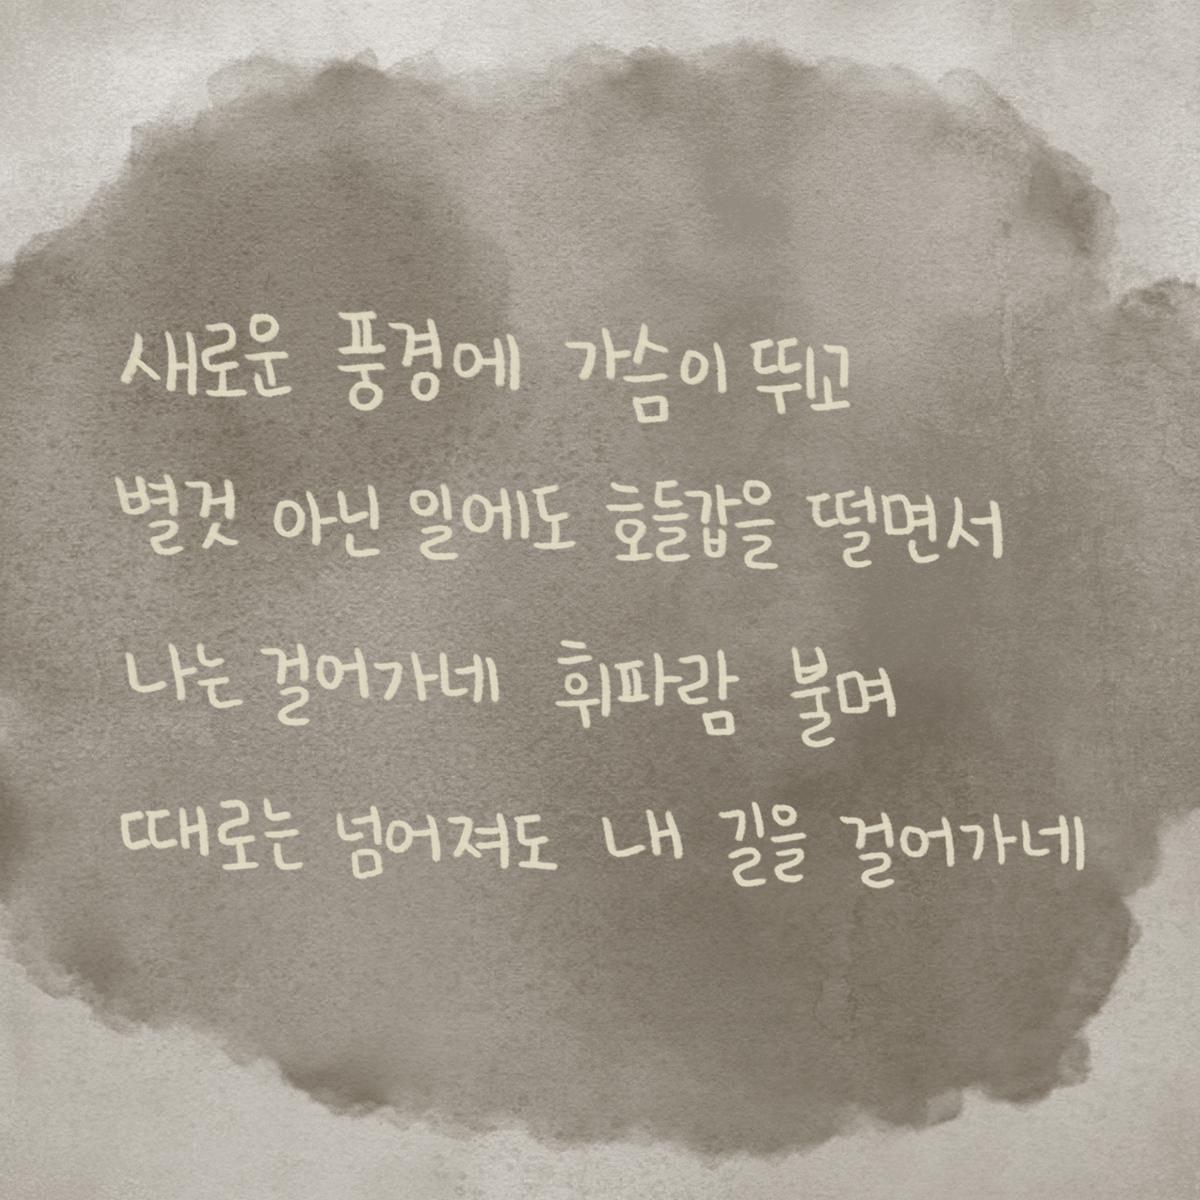 새로운 풍경에 가슴이 뛰고
별것 아닌 일에도 호들갑을 떨면서
나는 걸어가네 휘파람 불며
때로는 넘어져도 내 길을 걸어가네